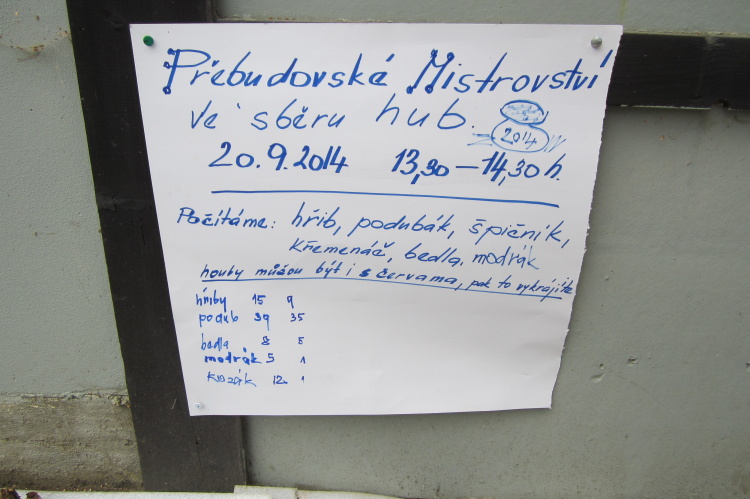 Přebudovská Mistrovství
ve sběru hub.
2014
20.9.2014 13,30 – 14,30 h.
Počítáme: hřib, podubák, špičník,
křemenáč, bedla, modrák
houby můžou být i s červama, pak to vykrájíte
hřiby 15 9
podub 39 35
bedla 8 5
modrák 5 1
kozák 12 1